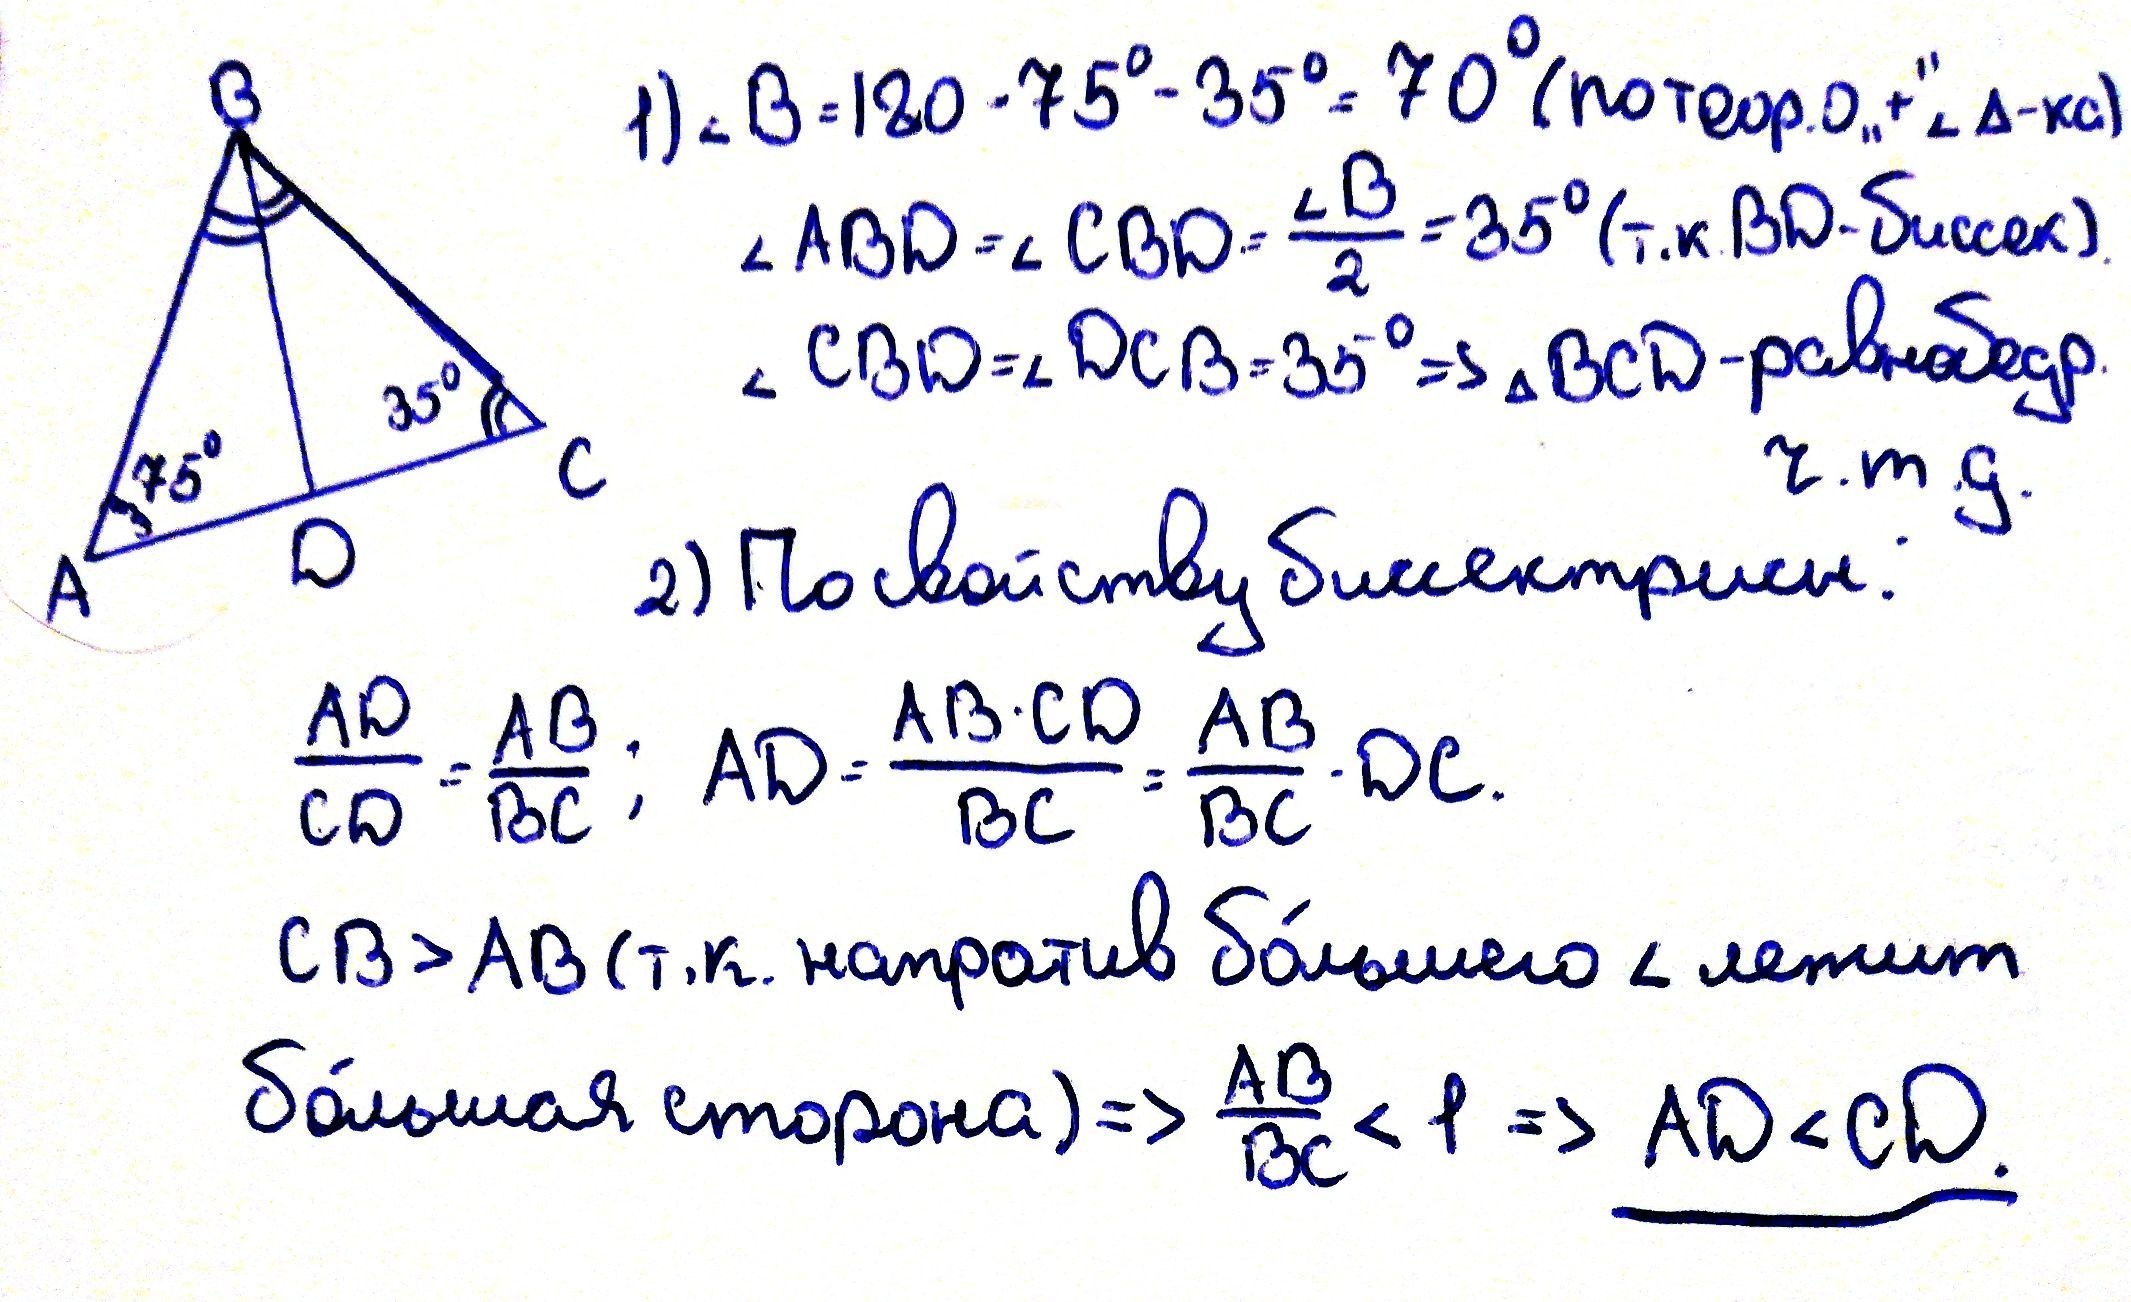 B
75°
35°
A
D
C
1) ∠B = 180 - 75° - 35° = 70° (по теор. о „+“ ∠ Δ-ка)
∠ABD = ∠CBD = ∠B/2 = 35° (т.к. BD-биссек).
∠CBD = ∠DCB = 35° => ΔBCD - равнобедр.
ч.т.д.
2) По свойству биссектрисы:
AD/CD = AB/BC; AD = AB·CD/BC = AB/BC · DC.
CB > AB (т.к. напротив бо́льшего ∠ лежит
бо́льшая сторона) => AB/BC < 1 => AD < CD.